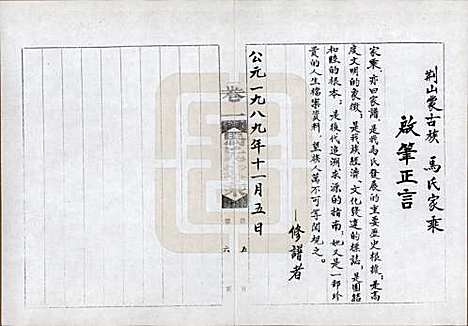 荆山蒙古族 馬氏家乘
啟筆正言
家乘，亦曰家譜，是我馬氏發展的重要歷史根據；是高
度文明的象徵；是我族經濟、文化發達的標誌；是團結
和睦的根本；是後代追溯求源的指南；她又是一部珍
貴的人生檔案資料，望族人萬不可等閑視之。
—修譜者
公元一九八九年十一月五日
卷一
五
六